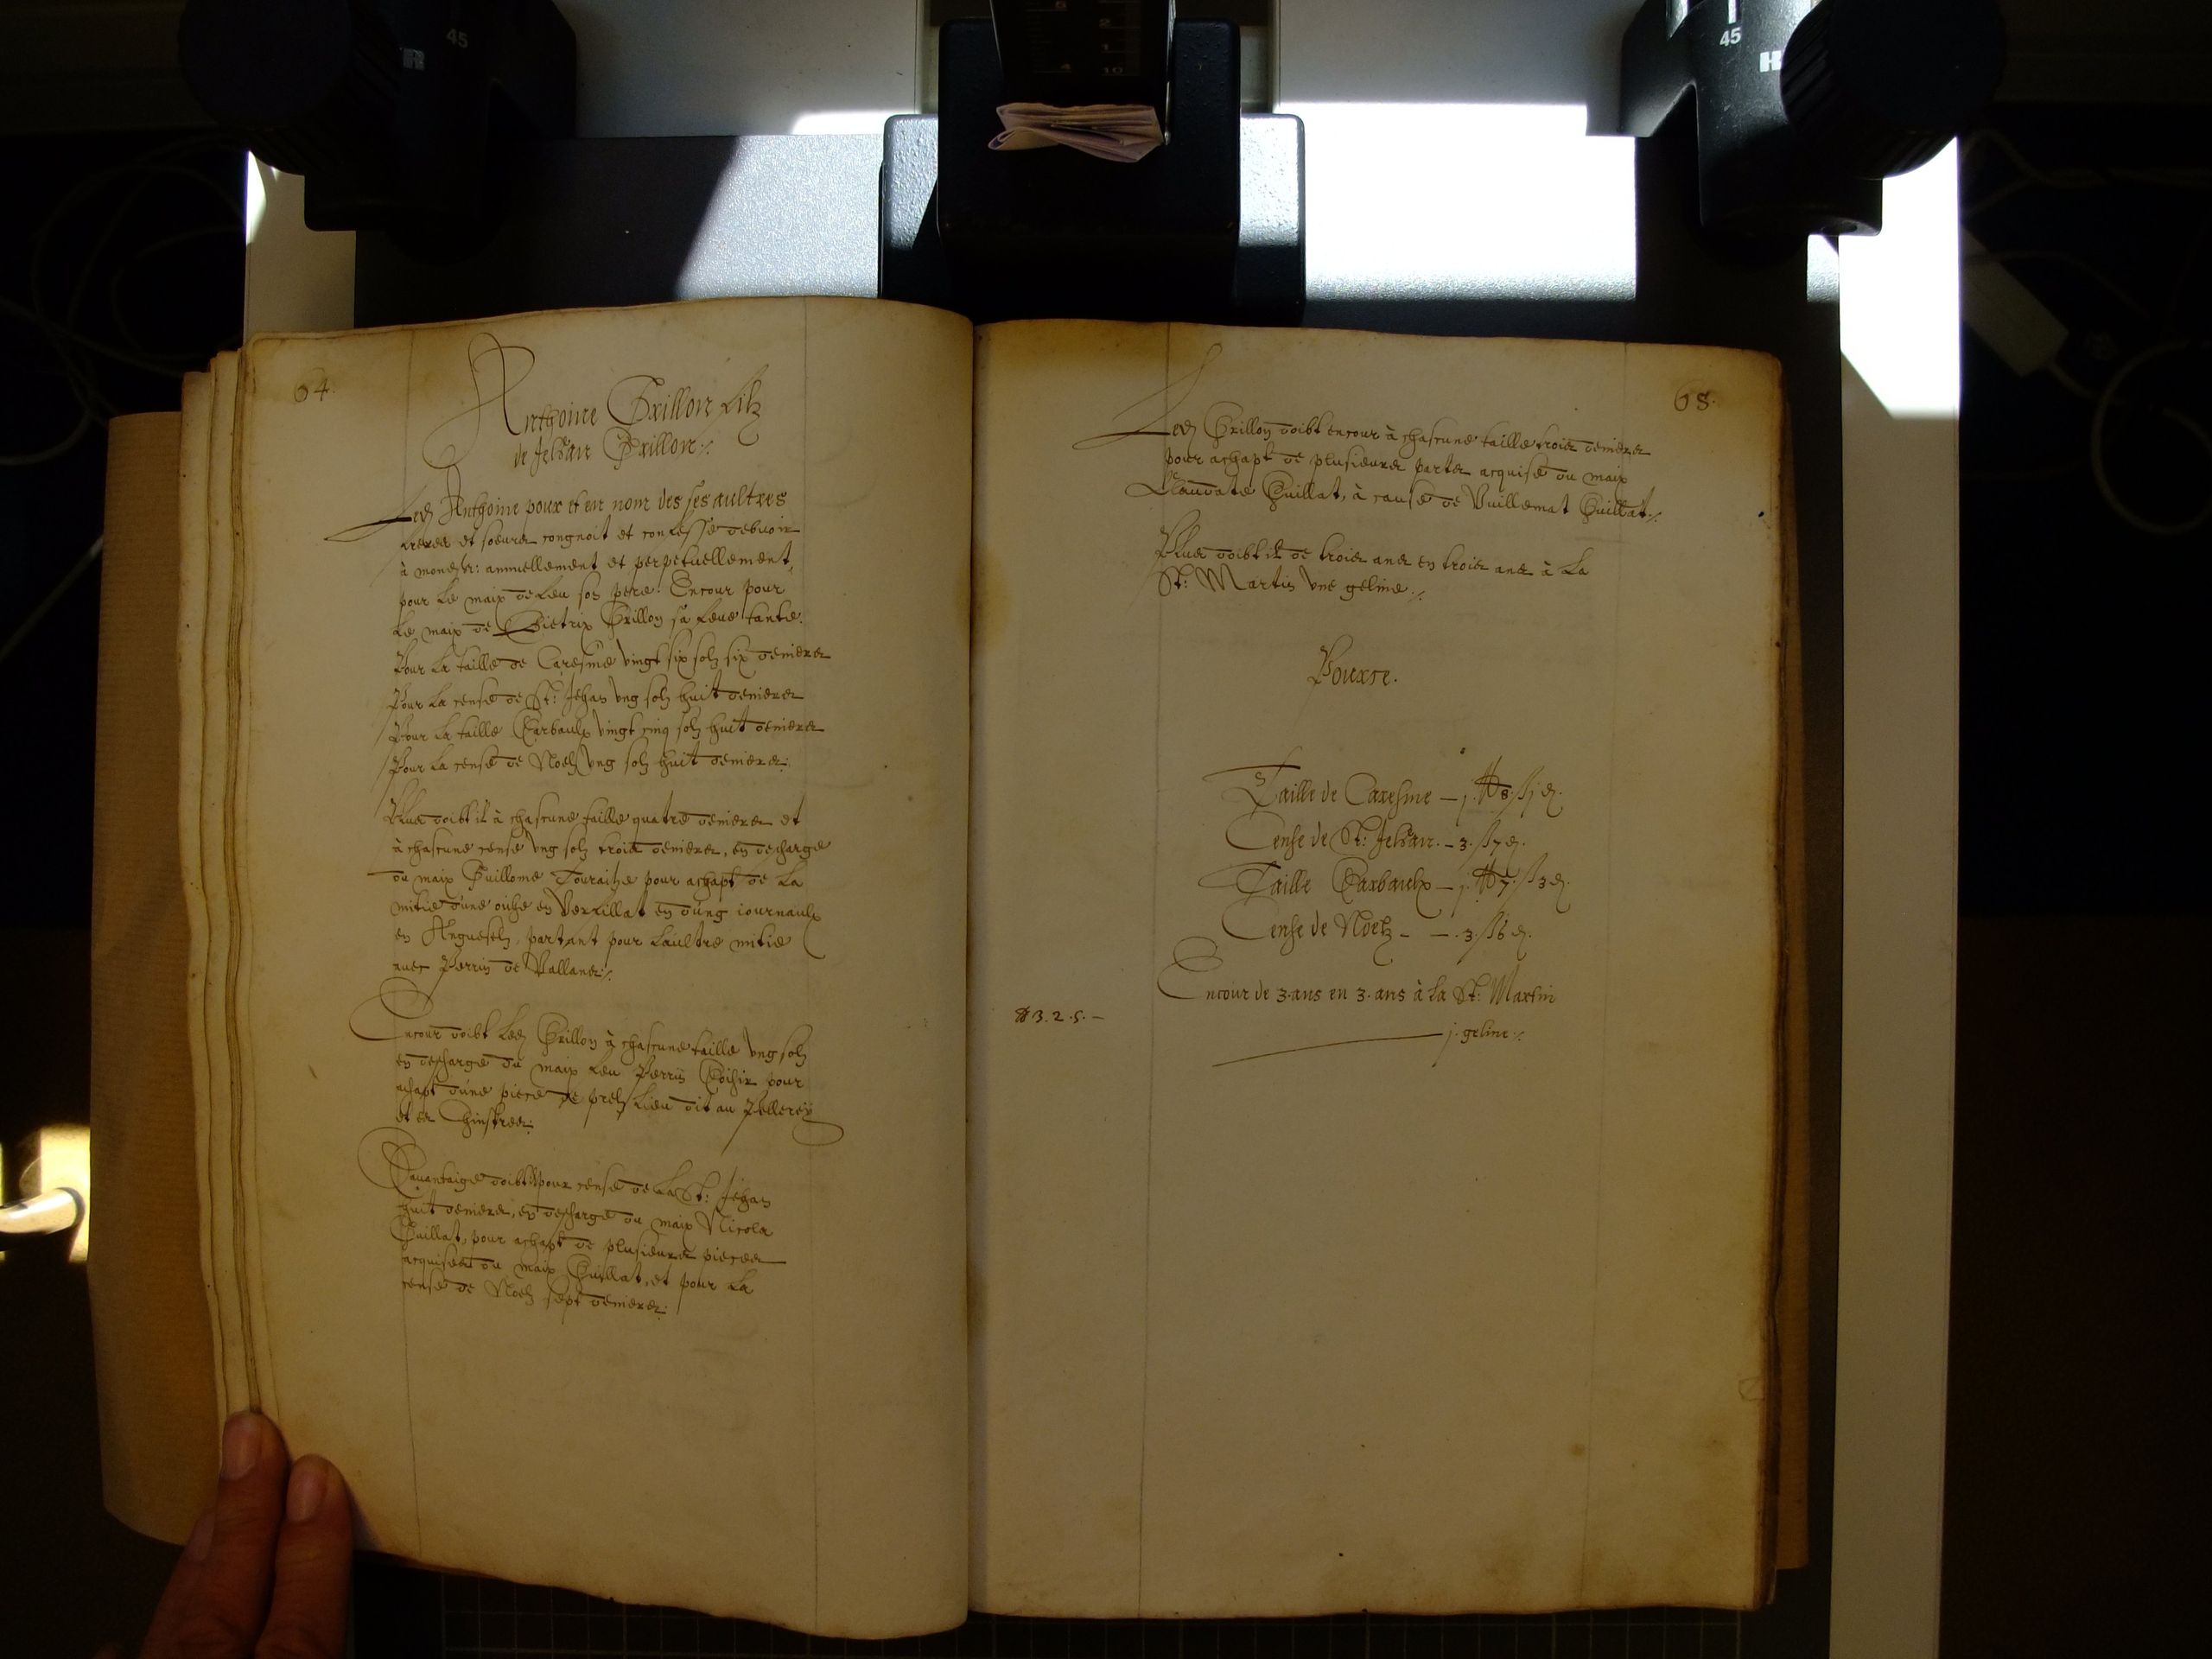 64.
Anthoine Grillon filz
de Jehan Grillon ⁒
Led. Anthoine pour et en nom des ses aultres
freres et soeures congnoit et confesse debuoir
à monsr: annuellement et perpetuellement,
pour le maix de feu son pere. Encour pour
le maix de Dietrix Grillon sa feue tante.
Pour la taille de Caresme vingt six solz six deniers
Pour la cense de St: Jehan vng solz huit deniers
Pour la taille Carbaulx vingt cinq solz huit deniers
Pour la cense de Noelz vng solz huit deniers.
Plus doibt il à chascune taille quatre deniers et
à chascune cense vng solz trois deniers, en descharge
du maix Guillome pour achapt de la
mitie d'une en Verfillat en d'ung iournaulx
en partant pour laultre mitie
auec Perrin de Vallans ⁒
Encour doibt led. Grillon à chascune taille vng solz
en descharge du maix feu Perrin pour
achapt d'une piece de prelz lieu dit au Pellerey
et es
Dauantaige doibt il pour cense de la St: Jehan
huit deniers, en descharge du maix Nicola
Cuillat, pour achapt de plusieures pieces
acquises du maix Cuillat, et pour la
cense de Noelz sept deniers.
Led. Grillon doibt encour à chascune taille trois deniers
pour achapt de plusieures partes acquise du maix
Claudate Cuillat, à cause de Vuillemat Cuillat ⁒
Plus doibt il de trois ans en trois ans à la
St: Martin vne geline ⁒
Pource.
Taille de Caresme — j. ₶ 8 ß j d.
Cense de St: Jehan. — 3. ß 7 d.
Taille Carbaulx — j. ₶ 7. ß 3 d.
Cense de Noelz — — . 3 ß 6 d.
Encour de 3. ans en 3. ans à la St: Martin
j. geline ⁒
₶ 3. 2. 5. —